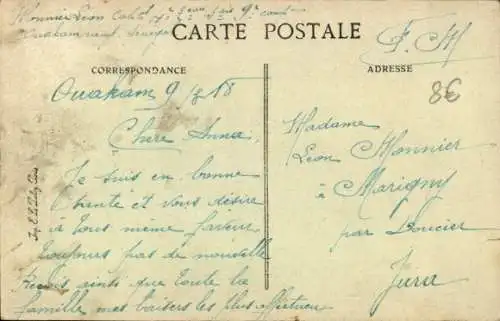 Monnier Léon
Ouakam
CARTE POSTALE
F. M
CORRESPONDANCE
ADRESSE
8€
Ouakam 9 18
Chère Anna,
Je suis en bonne
santé et vous désire
à tous même faveur
toujours pas de nouvelle
Reçois ainsi que toute la
famille mes baisers les plus affectueux
Madame
Léon Monnier
à Marigny
par Doucier
Jura